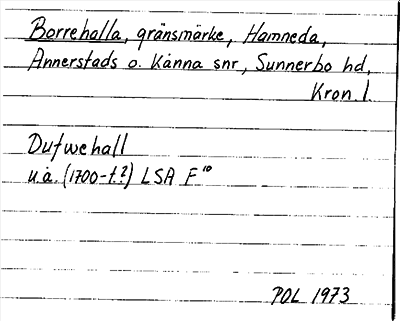 Borrehalla, gränsmärke, Hamneda,
Annerstads o. Kånna snr, Sunnerbo hd,
Kron. l.
Dufwehall
u.å. (1700-t.?) LSA F¹⁰
POL 1973